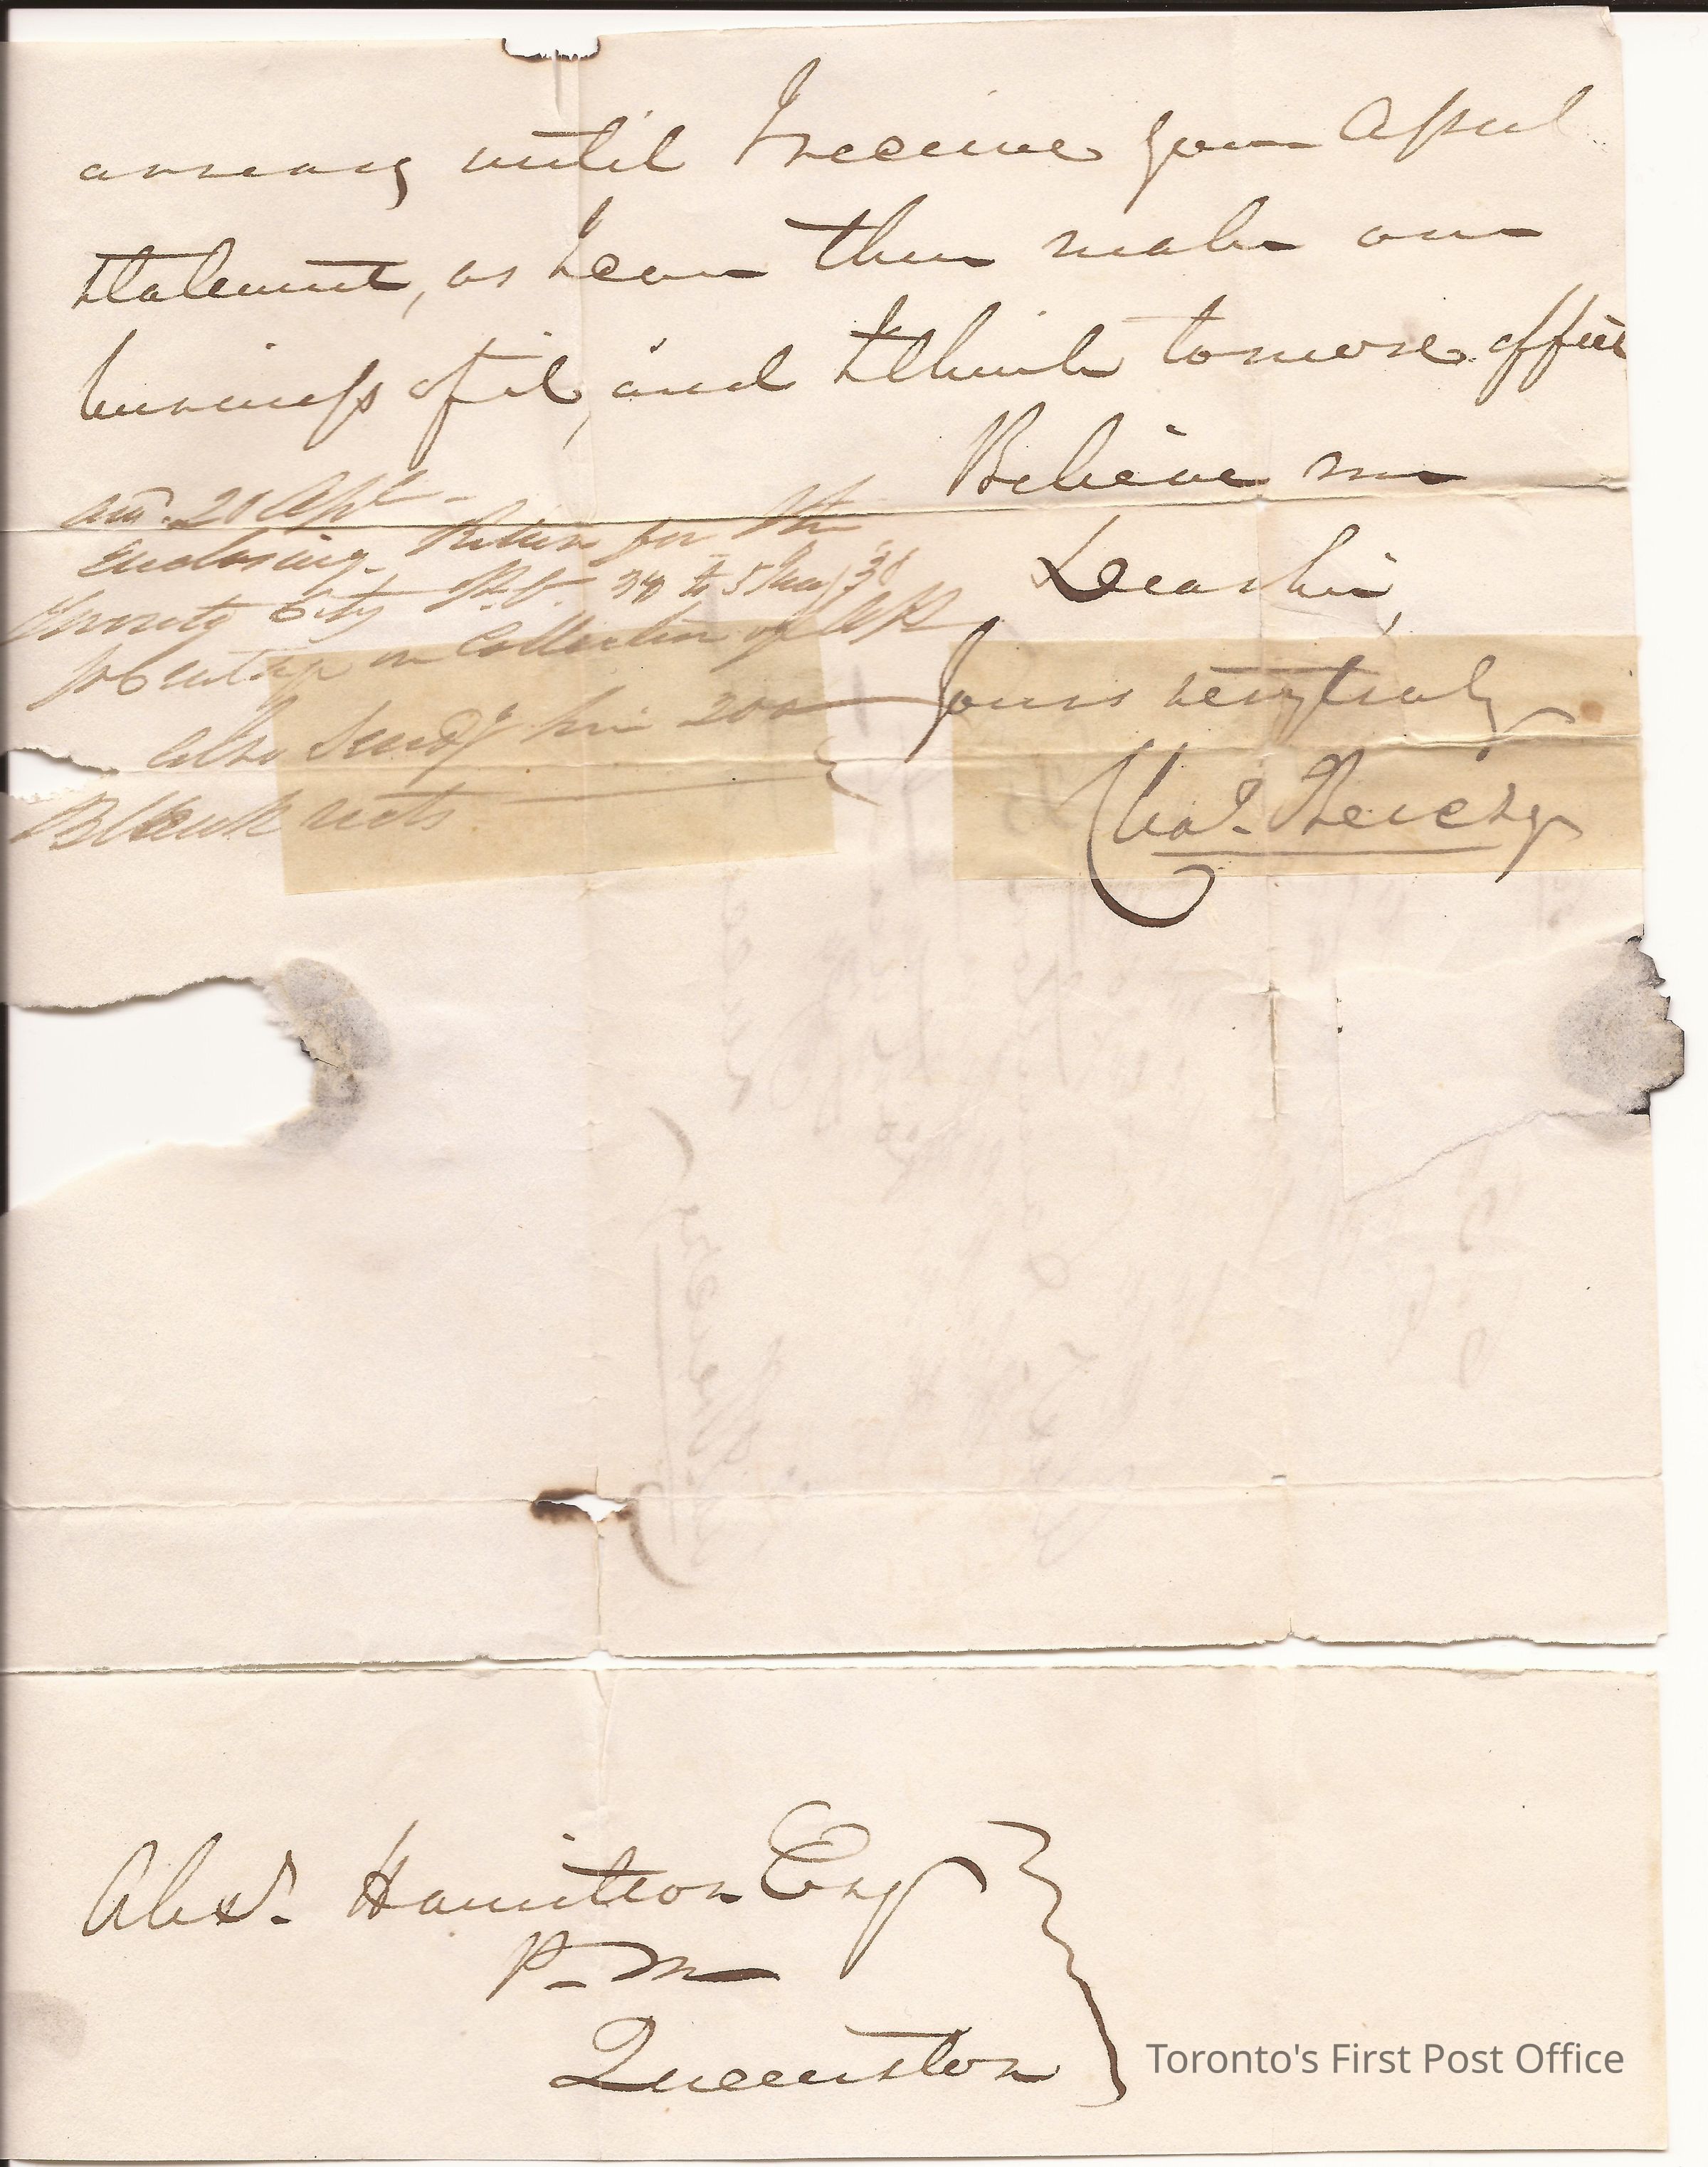 arrears until I receive your April
statement, as I can then make one
business of it, and I think to more effect
Believe me
Dear Sir,
Yours very truly
Chas. Berczy
ans. 20 Apl -
enclosing Return for the
City 5 Jany
on Collection of
also send him 200
Blank
Alexr. Hamilton Esq
P. M
Queenston
Toronto's First Post Office